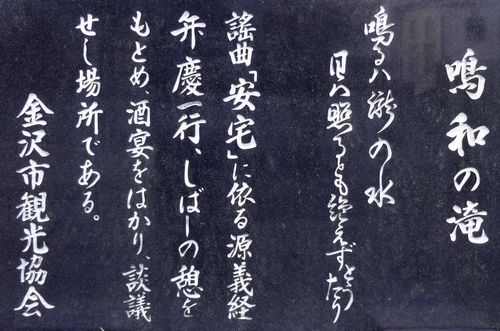 鳴和の滝
鳴るハ瀧の水
日ハ照るとも絶えずとうたり
謡曲「安宅」に依る源義経
弁慶一行、しばしの憩を
もとめ、酒宴をはかり、談議
せし場所である。
金沢市観光協会